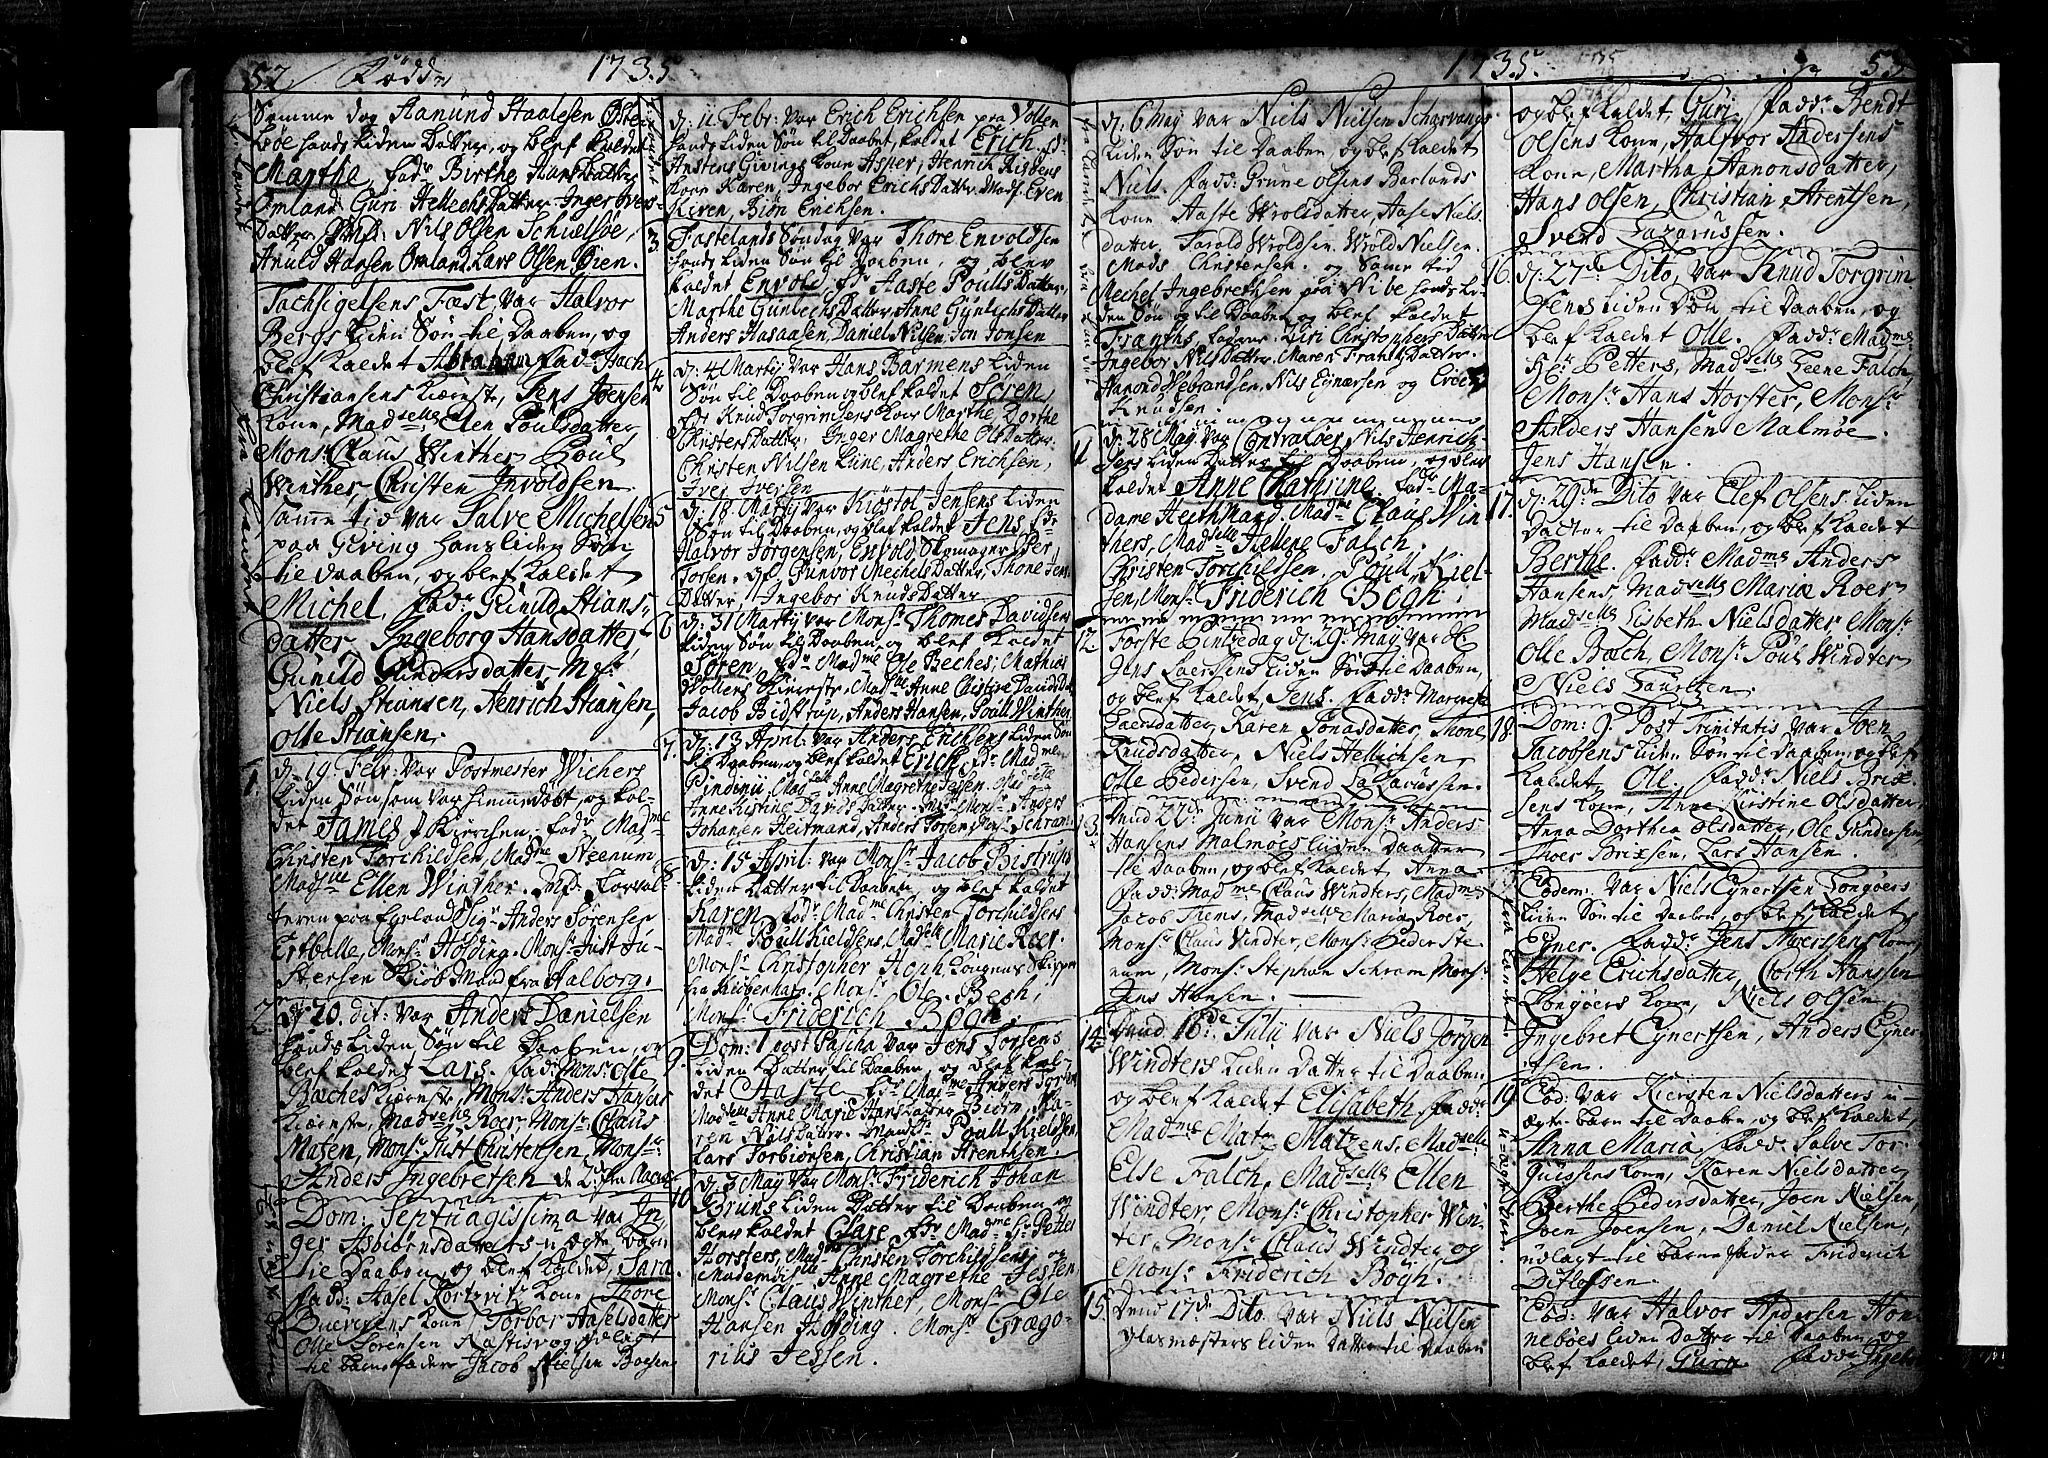 52 / Födde
1735
Samme dag Aamund Haalesen Øste
bøe hands liden Datter, og blef kaldet
Marthe, fadr Birthe Hans Datter
Omland Guri Hellechs Datter Inger
Datter, Nils Olsen
Anuld Hansen Omland Lars Olsen Øien.
Tachsigelsens Fæst var Halvor
Bergs liden Søn til Daaben, og
blef kaldet Abraham fadr Jach
Christiansens Kiæreste, Jens Joensen
kone, Madselle Elen Poulsdatter,
Monsr Claus Winther Poul
Winther, Christen Involdsen.
samme tid var Salve Michelsen
paa Giving hans liden Søn
til Daaben, og blef kaldet
Michel, fadr: Gunild Stians-
datter Ingeborg Hansdatter,
Gunild Gundersdatter,
Niels Stiansen, Henrich Stiansen,
Olle Stiansen.
1.
d. 19 Febr: var Postmester Wichers
liden Søn som var hiemmedøbt, og kal-
det James J Kirchen: fadr Madme
Christen Torchildsen, Madme Steenum
Madselle Ellen Winther.
paa Sigr Anders Sørensen
Monsr Holding. Monsr Just Ju-
stersen Kiøbmand fra Aalborg.
2
d. 20. dit: var Anders Danielsen
hands liden Søn til Daaben, og
blef kaldet Lars. fadr Monsr Olle
Bæches Kiæreste, Monsr Anders Hansens
Kiæreste, Madselle Roer, Monsr Claus
Matsen, Monsr Just Christensen, Monsr
Anders Ingebretsen
Dom: Septuagissima var In-
ger Asbiørnsdatters u ægte barn
til Daaben, og blef kaldet, Sara
fadd: Axel kone Thore
kone Torbor Axelsdatter
Olle Sørensen udlagt
til barnefader Jacob Nielsen Boesen
d: 11 Febr: var Erich Erichsen paa Vollen
hands liden Søn til Daabet, kaldet Erich fdr
Anstens Givings kone Asper, Henrich
Karen, Ingebor Erichs Datter. Madz Even
Kiren, Biøn Erichsen.
3
Fastelands Søndag var Thore Envoldsen
hands liden Søn til Daaben, og blev
kaldet Envold, fr Aaste Pouls Datter,
Marthe Gunlechs Datter, Anne Gunlichs Datter
Anders Hasaasen, Daniel Nilsen, Jon Jonsen
4
d: 4 Martij var Hans Barmens liden
Søn til Daaben og blef kaldet Soren
fdr Knud Torgrimsens kone Marthe, Dorthe
Christens Datter, Inger Magrethe Ols Datter
Christen Nilsen Liine, Anders Erichsen,
Iver Iversen
5
d: 18. Martij var Kiøstol Jensens liden
Søn til Daaben, og blef kaldet Jens fdr
Halvor Jørgensen, Envold Skomager, Per
Torsen. qf Gunvor Mechels Datter, Thone Jens
Datter, Ingebor Knuds Datter
6
d: 31 Martij var Monsr: Thomes Davidsen
liden Søn til Daaben og blef kaldet
Soren, fdr Madme Ole Beches; Mathias
Hollens Kiereste. Madme Anne Christine Davids Dat
Jacob Bidstrup, Anders Hansen, Poull Winther
7.
d: 13 April: var Anders Erichsens liden Søn
til Daaben, og blef kaldet Erich, fdr Madme
Pindenii, Madselle Anne Magrethe Jessen, Madselle
Anne Kistine Davids Datter. Monsr Anders
Johansen Heitmand, Anders Torsen, Monsr Schram
8.
d: 15 April: var Monsr Jacob Bistrups
liden Datter til Daaben og blef kaldet
Karen fdr: Madme Christen Torchildsens
Madme Poull Kieldsens, Madselle Marie Roer.
Monsr Christopher Hoph Kongens Skipper
fra Kiøbenhafn. Monsr Ole Bech,
Monsr Friderich Bogh.
9.
Dom: 1 post Pascha var Jens Torsens
liden Datter til Daaben og blef kal-
det Aaste fdr Madme Anders Torsen
Madme Anne Marie Hans Datter Biørn, Ka-
ren Nils Datter. Monsr Poull Kieldsen,
Lars Torbiønsen, Christian Arenthsen.
10
d: 3 May var Monsr Friderich Johan
Bruns liden Datter til Daaben og
blev kaldet Clare fdr: Madme Sr Petter
Horsters, Madme Christen Torchildsens, og
Mademoiselle Anne Magrethe Jessen
Monsr Claus Winther, Monsr Ole
Hansen Holding. Monsr Grægo-
rius Jessen.
1735.
53
d: 6 May var Niels Nielsen Scharvangs
liden Søn til Daaben, og blef kaldet
Niels. fadd: Brune Olsens Barlands
kone Aaste Wrolsdatter, Aase Niels
datter, Tarold Wroldsen. Wrold Nielsen.
Mads Christensen. og Samme tid
Mechel Ingebrethsen paa Nibe hands li-
den Søn og til Daaben og blef kaldet
Franths. Guri Christophers Datter
Ingebor Nils Datter. Maren Frants Datter.
Aanond Webrandsen, Nils Eynersen og Erich
Knudsen.
11
d: 28 May var Contraløer Nils Henrich-
sens liden Datter til Daaben, og blev
kaldet Anne Chathrine, fadr: Ma-
dame Heithmand. Madme Claus Win
thers, Madselle Hellene Falch.
Christen Torchildsen, Poull Kiel-
sen, Monsr: Friderich Bogh.
12.
Forste Pintzedag d: 29. May var
Jens Laersens liden Søn til Daaben,
og blef kaldet, Jens. fadr Margrete
Laersdatter, Karen Jonasdatter, Thone
Knudsdatter, Niels Hellichsen,
Olle Pedersen, Svend Lazarussen.
13.
Dend 22de Junii var Monsr: Anders
Hansens Malmøes liiden Daatter
til Daaben, og blef kaldet Anna
fadd: Madme Claus Windters, Madme
Jacob Thens, Madselle Maria Roer,
Monsr Claus Windter, Monsr Peder Ste
num, Monsr: Stephan Schram Monsr
Jens Hansen.
14
Dend 16de Julii var Niels Jørgen
Windters liden Datter til Daaben
og blef kaldet Elisabeth, fadr:
Madme Matz Matzens, Madselle
Else Falch, Madselle Ellen
Windter, Monsr Christopher Win-
ter, Monsr Claus Windter og
Monsr Friderich Bogh.
15.
Dend 17de Dito. var Niels Nielsen
Glasmesters liden Datter til Daaben
og blef kaldet Guri, fadr: Bendt
Olsens kone, Halvor Andersens
kone, Martha Aanonsdatter,
Hans Olsen, Christian Arentsen,
Svend Lazarussen.
16.
d: 27de Dito, var Knud Torgrim
sens liden Søn til Daaben, og
blef kaldet Olle. fadr: Madme
Hr: Petters, Madselle Leene Falch,
Monsr Hans Horster, Monsr
Anders Hansen Malmøe.
Jens Hansen.
17.
d: 29de Dito var Elef Olsens liden
Datter til Daaben, og blef kaldet
Berthe. fadr: Madme Anders
Hansens Madselle Maria Roer
Madselle Lisbeth Nielsdatter Monsr
Olle Bæch, Monsr: Poul Windter
Niels Lauritzen.
18.
Dom: 9. Post Trinitatis var Joen
Jacobsens liden Søn til Daaben, og blef
kaldet, Ole fadr: Niels Brix
sens kone, Anne Kirstine Olsdatter,
Anna Dorthea Olsdatter, Ole Gundersen,
Thoer Brixsen, Lars Hansen.
Eodem: var Niels Eynertsen Longøers
liden Søn til Daaben, og blef kaldet
Eyner. fadr: Jens Ayertsens kone,
Helge Erichsdatter, Corth Hanssen
Longøers kone, Niels Olsen,
Ingebret Eynertsen, Anders Eyner
tsen.
19.
Eod: var Kiersten Nielsdatters u-
ægte barn til Daaben, og blef kaldet
Anna Maria, fadd: Salve Tor-
guissens kone, Karen Nielsdatter
Berthe Pedersdatter, Joen Nielsen,
Joen Joensen, Daniel Nielsen,
udlagt til barnefader Friderich
Ditlofsen.
Eod: var Halvor Andersen Hon
nebøes liden Datter til Daaben, og
blef kaldet, Guro. fadr: Ingeb